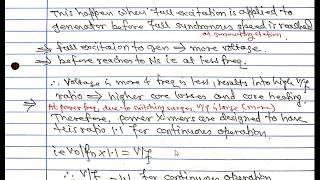 This happen when full excitation is applied to
generator before full synchronous speed is reached
at generating station
⇒ full excitation to gen → more voltage.
⇒ before reaches to Ns i.e at less freq.
∴ Voltage is more & freq is less, results into high V/f
ratio ⇒ higher core losses and core heating.
⇒ At power freq, due to switching surges, V/f is large
Therefore, power X'mers are designed to have
this ratio 1.1 for continuous operation.
i.e V0/fn x 1.1 = V/f
∴ V/f 1.1 for continuous operation